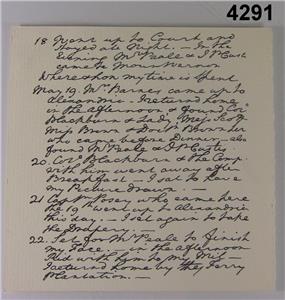 4291
18 Went up to Court and
stayed all Night. — In the
Evening Mr Peale & J. P. Custis
came to Mount Vernon.
Where & how my time is Spent
May 19. Mr Barnes came up to
Alexandria. — Returned home
in the Afternoon & found Col°
Blackburn & Lady Majr Scott
Miss Brown & Doctr Brumley
who came before Dinner — also
found Mr Peale & J. P. Custis
20. Col° Blackburn & the Comp.
with him went away after
Breakfast. — I sat to have
my Picture drawn. —
21 Captn Posey who came here
the 19th went up to Alexandria
this day. — I set again to take
the Drapery. —
22. Set for Mr Peale to finish
my Face. — in the afternoon
Rid with him to my Mill —
Returned home by the Ferry
Plantation. —